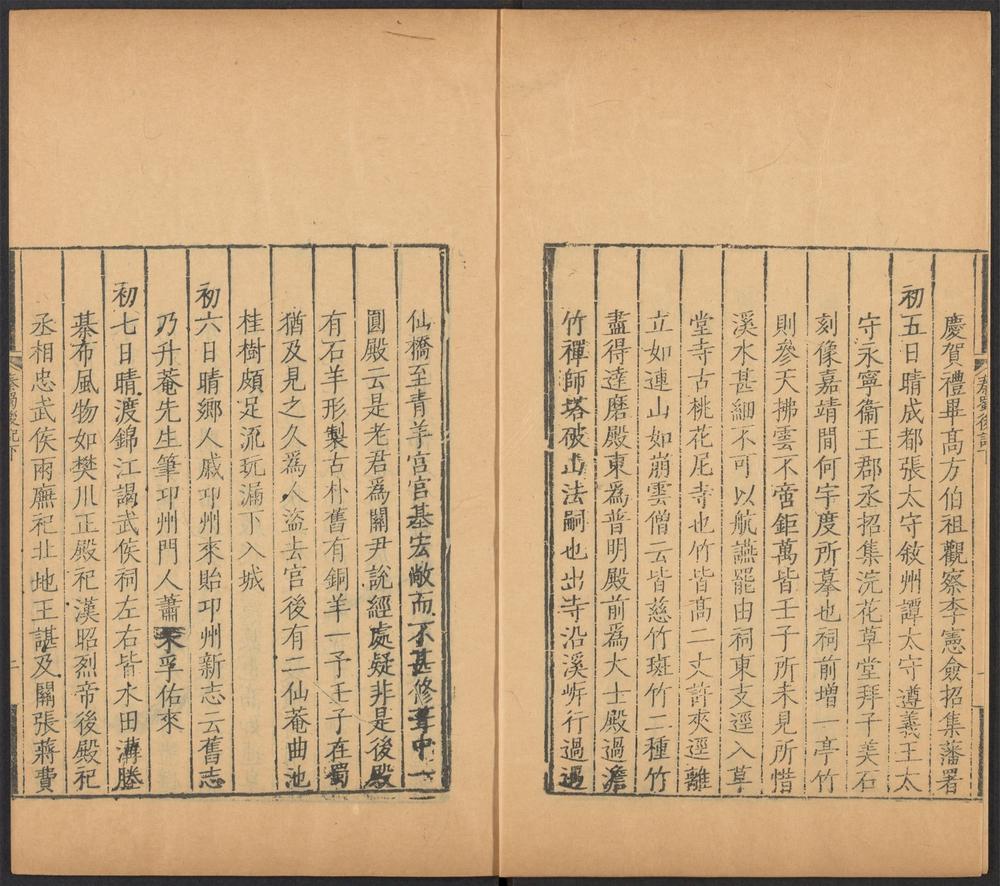 慶賀禮畢高方伯祖觀察李憲僉招集藩署
初五日晴成都張太守敘州譚太守遵義王太
守永寧衞王郡丞招集浣花草堂拜子美石
刻像嘉靖間何宇度所摹也祠前增一亭竹
則參天拂雲不啻鉅萬皆壬子所未見所惜
溪水甚細不可以航讌罷由祠東支逕入草
堂寺古桃花尼寺也竹皆高二丈許夾逕離
立如連山如崩雲僧云皆慈竹斑竹二種竹
盡得達磨殿東爲普明殿前爲大士殿過澹
竹禪師塔破山法嗣也出寺沿溪岸行過遇
秦蜀後記下
仙橋至青羊宮宮基宏敞而不甚修葺中一
圓殿云是老君爲關尹說經處疑非是後殿
有石羊形製古朴舊有銅羊一予壬子在蜀
猶及見之久爲人盜去宮後有二仙菴曲池
桂樹頗足流玩漏下入城
初六日晴鄉人戚卭州來貽卭州新志云舊志
乃升菴先生筆卭州門人蕭孚佑來
初七日晴渡錦江謁武侯祠左右皆水田溝塍
棊布風物如樊川正殿祀漢昭烈帝後殿祀
丞相忠武侯兩廡祀北地王諶及關張蔣費
秦蜀後記下